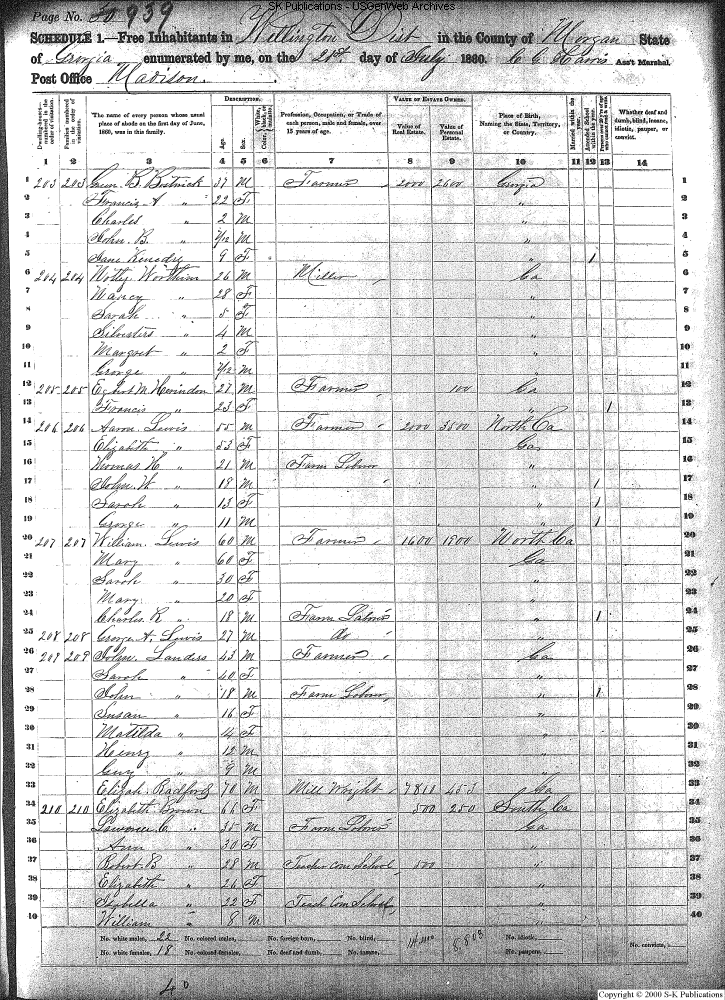 SK Publications - USGenWeb Archives
Page No. 939
SCHEDULE 1.—Free Inhabitants in Wellington Dist in the County of Morgan State
of Georgia enumerated by me, on the 21st day of July 1860. C C Harris Ass't Marshal.
Post Office Madison.
Dwelling-houses—numbered in the order of visitation.
Families numbered in the order of visitation.
The name of every person whose usual place of abode on the first day of June, 1860, was in this family.
DESCRIPTION.
Age.
Sex.
Color,
Profession, Occupation, or Trade of each person, male and female, over 15 years of age.
VALUE OF ESTATE OWNED.
Value of Real Estate.
Value of Personal Estate.
Place of Birth, Naming the State, Territory, or Country.
Married within the year.
Attended School within the year.
Whether deaf and dumb, blind, insane, idiotic, pauper, or convict.
1 2 3 4 5 6 7 8 9 10 11 12 13 14
1 203 203 B. Bostwick 37 M Farmer 2000 2600 Georgia 1
2 Francis A " 22 F " 2
3 Charles " 2 M " 3
4 John B. " /12 M " 4
5 Jane Kenedy 9 F 1 5
6 204 204 Worthim 26 M Miller Ga 6
7 Nancy " 28 F " 7
8 Sarah " 5 F " 8
9 Silvesters " 4 M " 9
10 Margret " 2 F " 10
11 George " /12 M " 11
12 205 205 Egbert M. Herindon 27 M Farmer 100 Ga 12
13 Francis " 23 F " 1 13
14 206 206 Aaron Lewis 55 M Farmer 2000 3600 North Ca 14
15 Elizabeth " 53 F Ga 15
16 Thomas H " 21 M Farm Labour " 16
17 John W " 19 M " 1 17
18 Sarah " 13 F " 1 18
19 George " 11 M " 1 19
20 207 207 William Lewis 60 M Farmer 1600 1900 North Ca 20
21 Mary " 60 F Ga 21
22 Sarah " 30 F " 22
23 Mary " 20 F " 23
24 Charles R " 18 M Farm Labour " 1 24
25 208 208 George A. Lewis 27 M do " 25
26 209 209 John Landers 43 M Farmer Ga 26
27 Sarah " 40 F " 27
28 John " 18 M Farm Labour " 1 28
29 Susan " 16 F " 29
30 Matilda " 14 F " 30
31 Henry " 12 M " 31
32 Guy " 9 M " 32
33 Elijah Radford 70 M Mill Wright 7810 453 Ga 33
34 210 210 Elizabeth Brown 66 F 500 250 South Ca 34
35 C " 35 M Farm Labour Ga 35
36 Ann " 30 F " 36
37 Robert B " 28 M Teacher Com School 500 " 37
38 Elizabeth " 26 F " 38
39 Sybella " 22 F Teach Com School " 39
40 William " 8 M " 40
No. white males, 22 No. colored males, No. foreign born, No. blind, 8,803 No. idiotic, No. convicts,
No. white females, 18 No. colored females, No. deaf and dumb, No. insane, No. paupers,
40
Copyright © 2000 S-K Publications